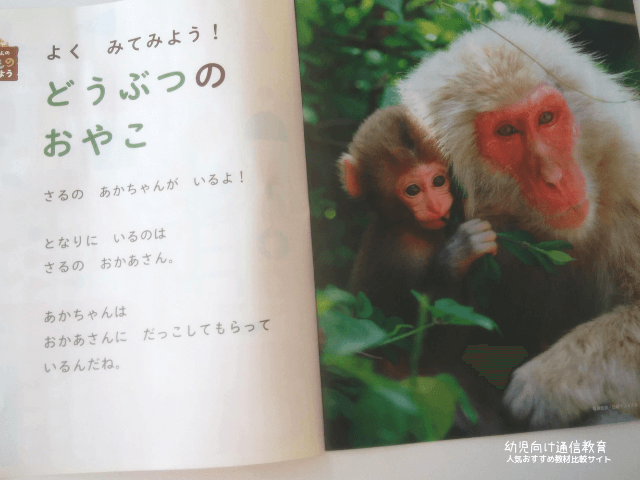 よく　みてみよう！
どうぶつの
おやこ
さるの　あかちゃんが　いるよ！
となりに　いるのは
さるの　おかあさん。
あかちゃんは
おかあさんに　だっこしてもらって
いるんだね。
幼児向け通信教育
人気おすすめ教材比較サイト